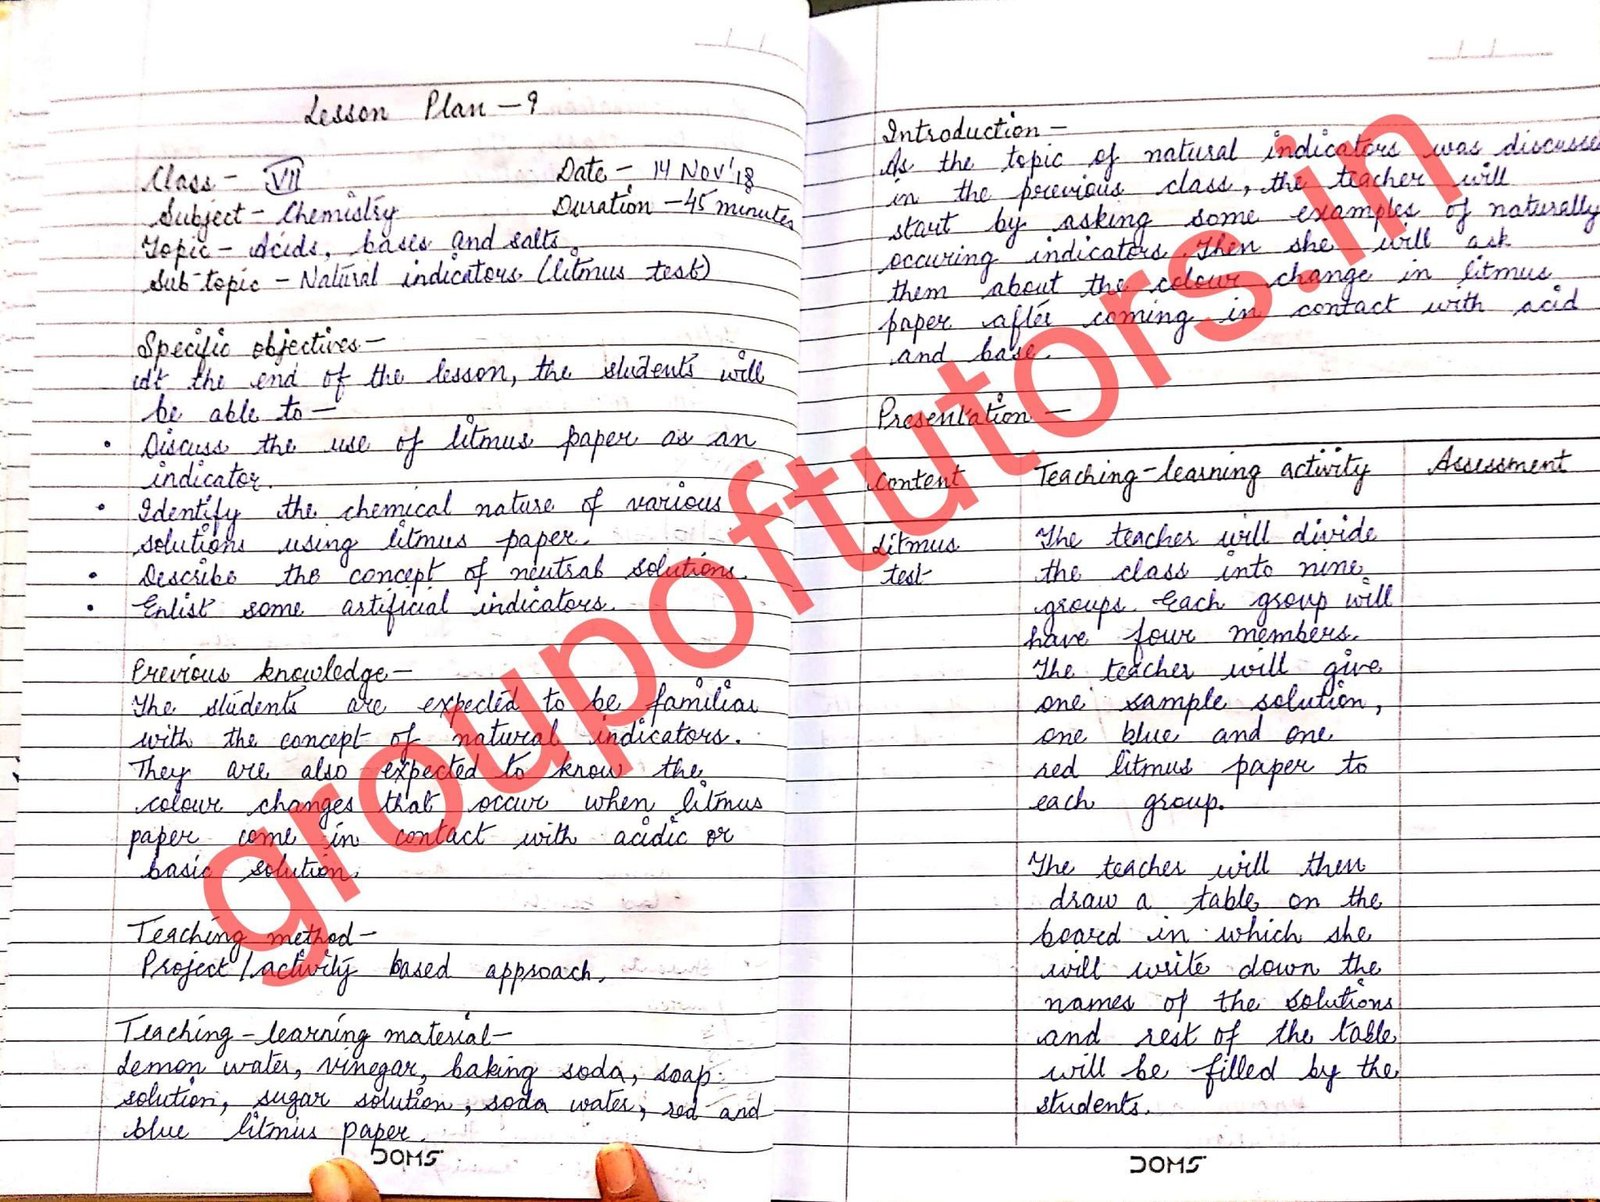 Lesson Plan - 9
Class - VII
Date - 14 Nov'18
Subject - Chemistry
Duration - 45 minutes
Topic - Acids, bases and salts.
Sub topic - Natural indicators (litmus test)
Specific objectives -
At the end of the lesson, the students will
be able to -
• Discuss the use of litmus paper as an
indicator.
• Identify the chemical nature of various
solutions using litmus paper.
• Describe the concept of neutral solutions.
• Enlist some artificial indicators.
Previous knowledge -
The students are expected to be familiar
with the concept of natural indicators.
They are also expected to know the
colour changes that occur when litmus
paper come in contact with acidic or
basic solution.
Teaching method -
Project / activity based approach.
Teaching - learning material -
Lemon water, vinegar, baking soda, soap
solution, sugar solution, soda water, red and
blue litmus paper.
DOMS
Introduction -
As the topic of natural indicators was discusse
in the previous class, the teacher will
start by asking some examples of naturally
occuring indicators. Then she will ask
them about the colour change in litmus
paper after coming in contact with acid
and base.
Presentation -
Content Teaching - learning activity Assessment
Litmus
test
The teacher will divide
the class into nine
groups. Each group will
have four members.
The teacher will give
one sample solution,
one blue and one
red litmus paper to
each group.
The teacher will then
draw a table on the
board in which she
will write down the
names of the solutions
and rest of the table
will be filled by the
students.
DOMS
groupoftutors.in